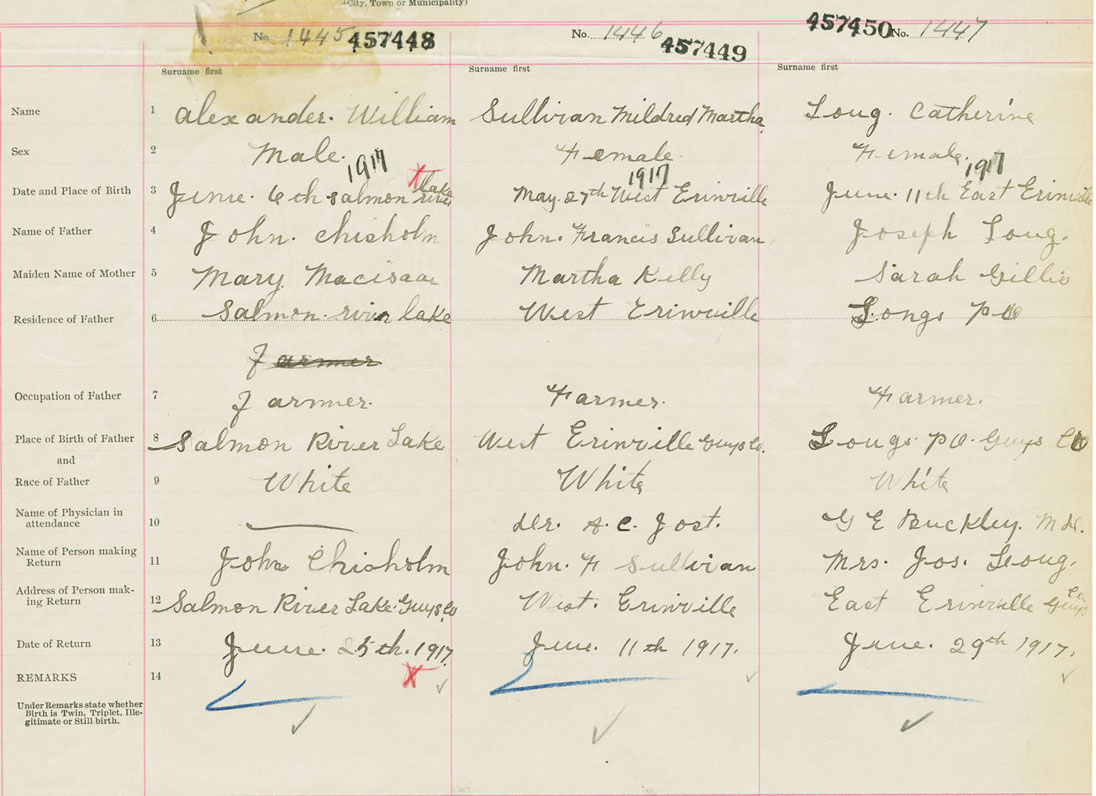 (City, Town or Municipality)
No. 1445 457448 No. 1446 457449 457450 No. 1447
Surname first Surname first Surname first
Name 1 Alexander. William Sullivan Mildred Martha Long. Catherine
Sex 2 Male. Female. Female.
1917 1917 1917
Date and Place of Birth 3 June. 6th Salmon river lake May 27th West Erinville June. 11th East Erinville
Name of Father 4 John. Chisholm John. Francis Sullivan Joseph Long.
Maiden Name of Mother 5 Mary Macisaac Martha Kelly Sarah Gillis
Residence of Father 6 Salmon river lake West Erinville Longs P O
Farmer
Occupation of Father 7 Farmer. Farmer. Farmer.
Place of Birth of Father 8 Salmon River Lake West Erinville Guys Co. Longs P O. Guys Co
and
Race of Father 9 White White White
Name of Physician in
attendance 10 Dr. A. C. Jost. G E Buckley. M D.
Name of Person making
Return 11 John Chisholm John. F Sullivan Mrs. Jos. Long.
Address of Person mak-
ing Return 12 Salmon River Lake Guys Co West. Erinville East Erinville Guys Co
Date of Return 13 June. 25th. 1917. June. 11th 1917. June. 29th 1917.
REMARKS 14
Under Remarks state whether
Birth is Twin, Triplet, Ille-
gitimate or Still-birth.